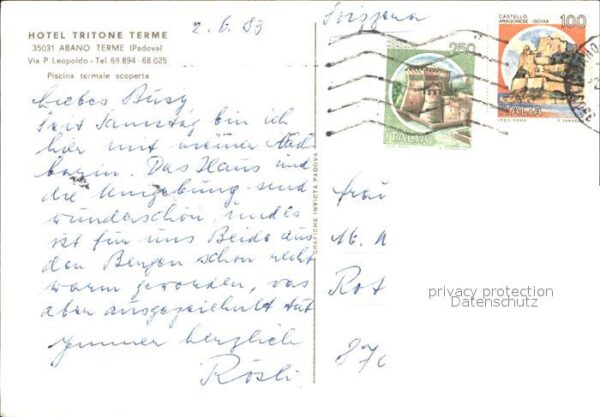 HOTEL TRITONE TERME
35031 ABANO TERME (Padova)
Via P. Leopoldo - Tel. 69.894 - 68.025
Piscina termale scoperta
2.6.83
Liebes Büsy
Seit Samstag bin ich
hier mit meiner Nach
barin. Das Haus und
die Umgebung sind
wunderschön, und es
ist für uns Beide aus
den Bergen schon recht
warm geworden, was
aber ausgezeichnet tut
Immer herzlich
Rösli
GRAFICHE INVICTA PADOVA
Svizzera
250
ITALIA
CASTELLO
ARAGONESE - ISCHIA
100
ITALIA
I.P.Z.S. ROMA
Frau
M. A
Rot
870
privacy protection
Datenschutz